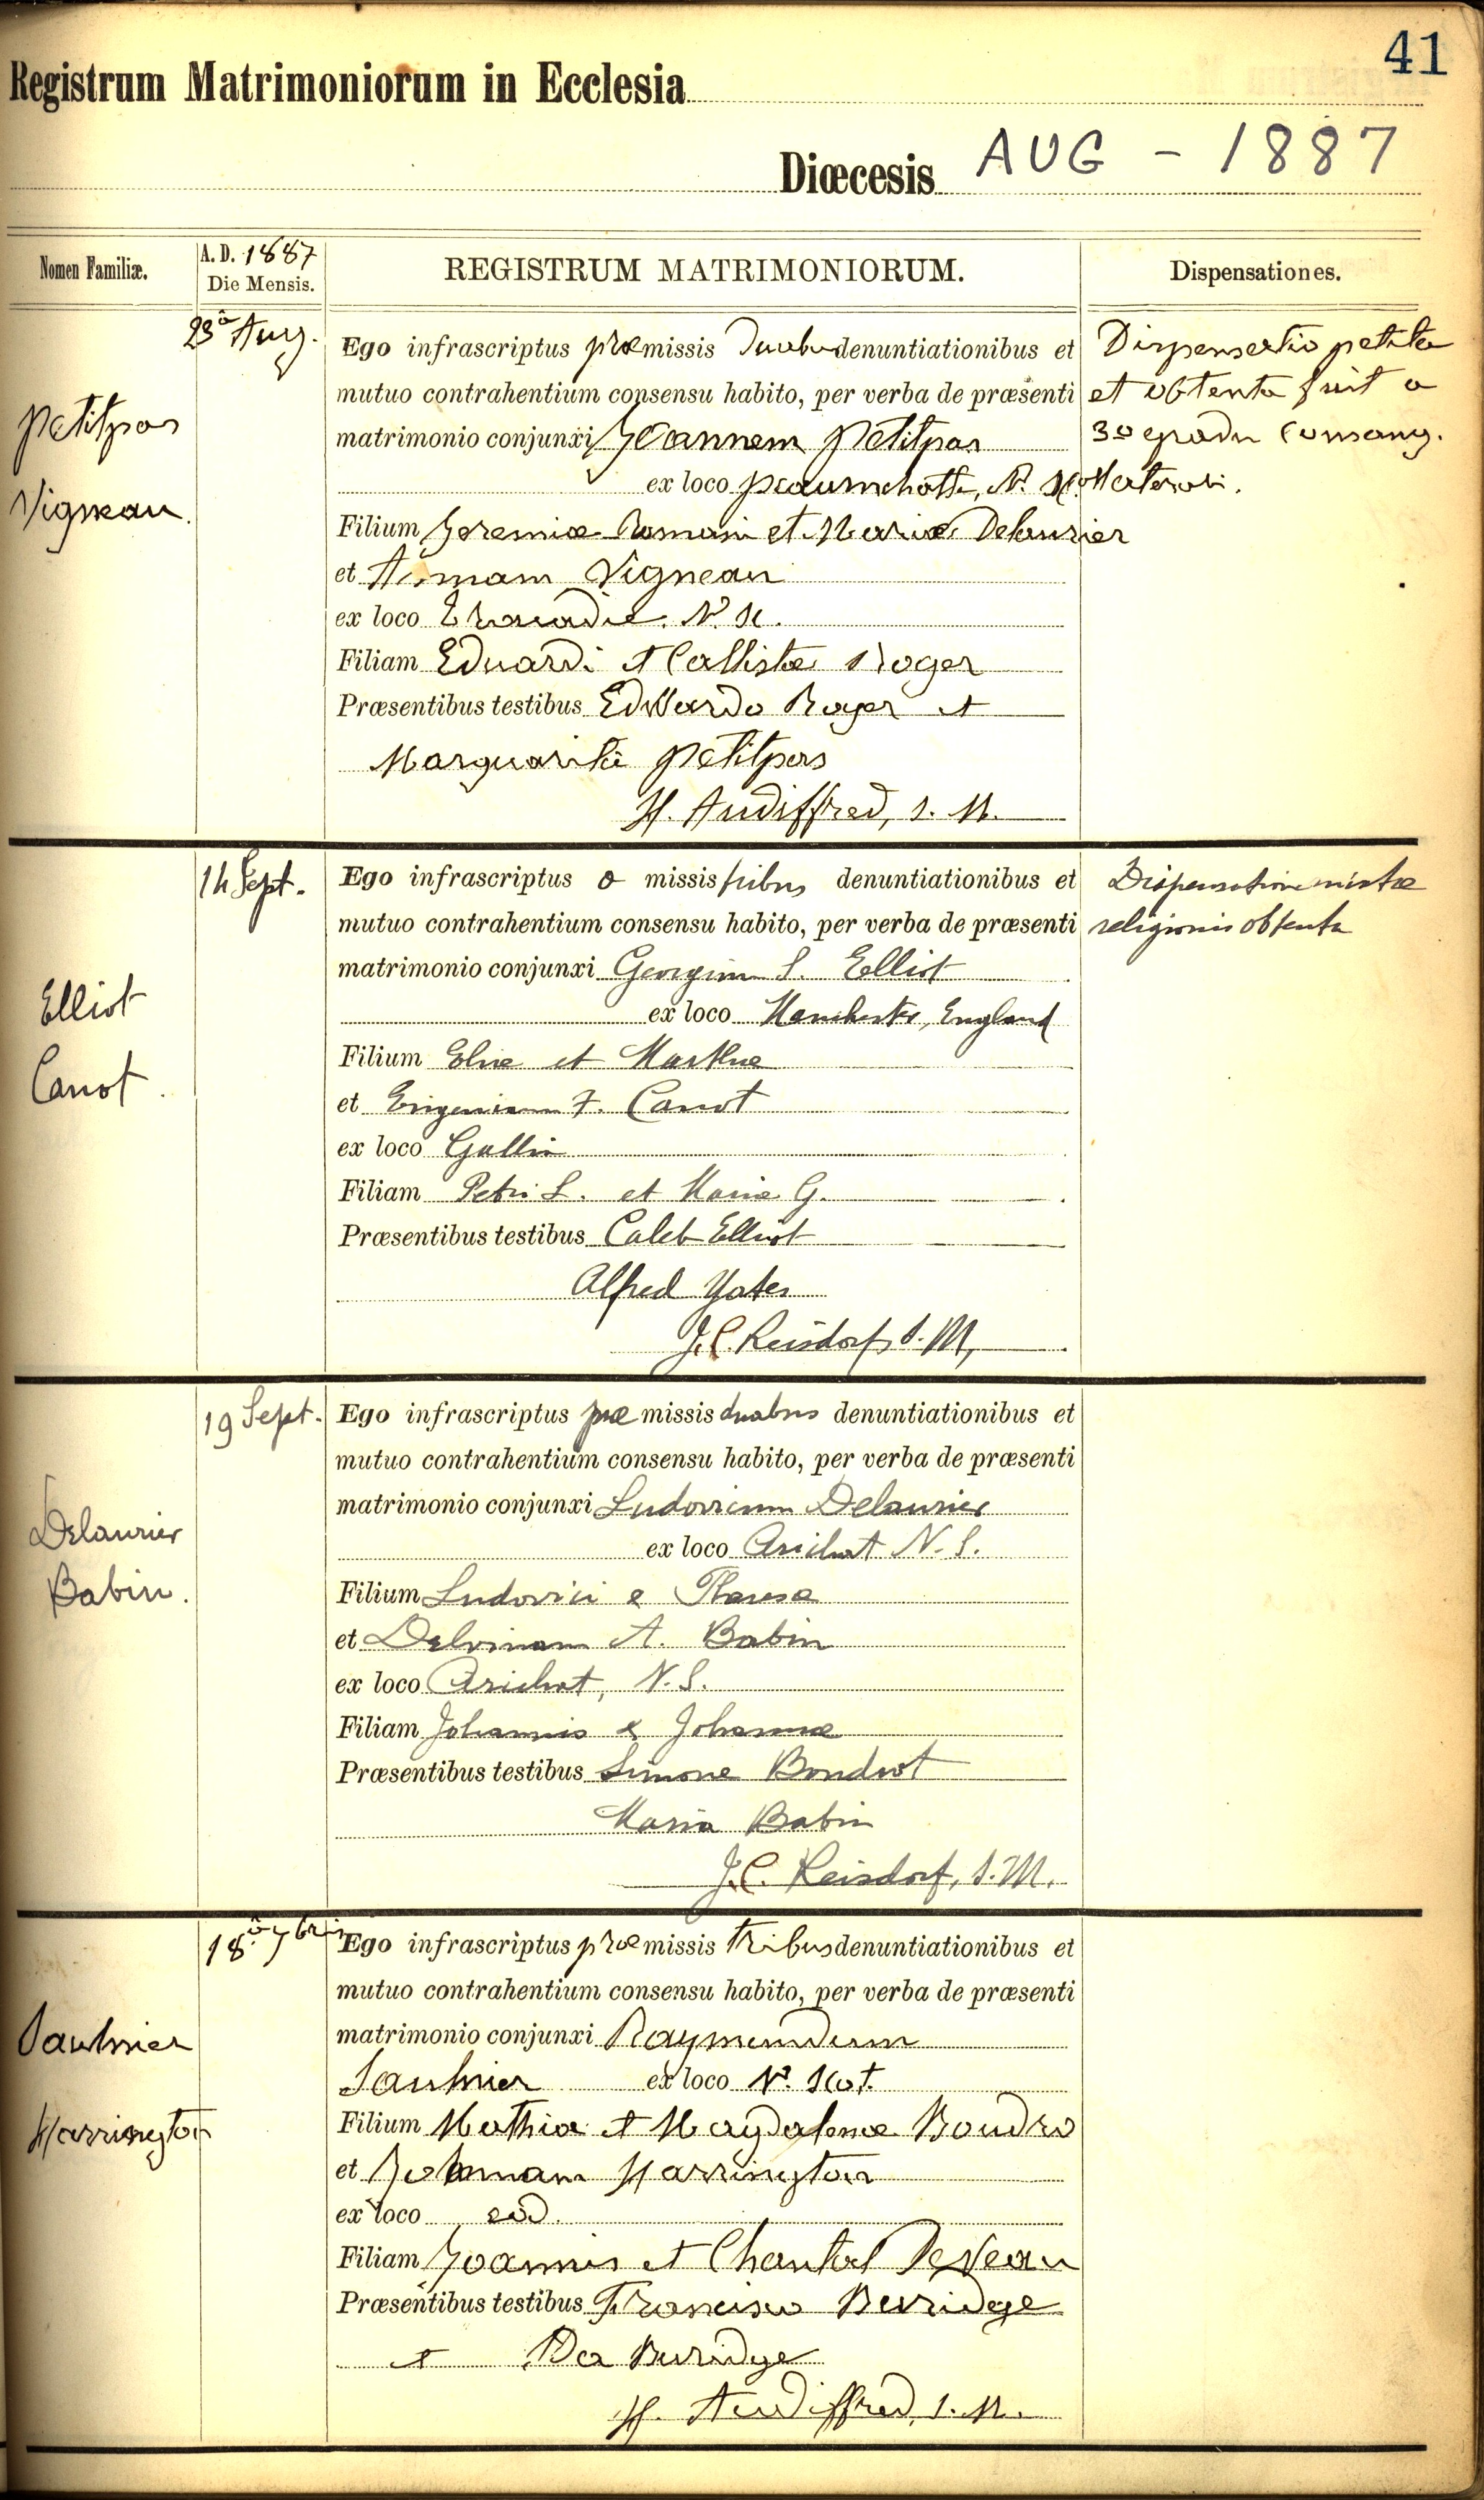 41
Registrum Matrimoniorum in Ecclesia
Diœcesis AUG - 1887
Nomen Familiæ.
A. D. 1887
Die Mensis.
REGISTRUM MATRIMONIORUM.
Dispensationes.
23â Aug.
Petitpas
Vigneau.
Ego infrascriptus præmissis duabus denuntiationibus et
mutuo contrahentium consensu habito, per verba de præsenti
matrimonio conjunxi Joannem Petitpas
ex loco N.
Filium Jeremiæ Romani et Mariæ Delaurier
et Annam Vigneau
ex loco N. S.
Filiam Eduardi et Callistæ Roger
Præsentibus testibus Edwardo Roger et
Marguarita Petitpas
H. Audiffred, S. M.
Dispensatio petita
et obtenta fuit a
3o gradu Consang.
14 Sept.
Elliot
Canot
Ego infrascriptus o missis tribus denuntiationibus et
mutuo contrahentium consensu habito, per verba de præsenti
matrimonio conjunxi Georgium S. Elliot
ex loco Manchester, England
Filium Eliæ et Marthæ
et Eugeniam F. Canot
ex loco Gallia
Filiam Petri L. et Mariæ G.
Præsentibus testibus Caleb Elliot
Alfred Yates
J. C. Reisdorf S. M,
Dispensatione mixtæ
religionis obtenta
19 Sept.
Delaurier
Babin.
Ego infrascriptus præ missis duabus denuntiationibus et
mutuo contrahentium consensu habito, per verba de præsenti
matrimonio conjunxi Ludovicum Delaurier
ex loco Arichat N. S.
Filium Ludovici & Theresæ
et Delvinam A. Babin
ex loco Arichat, N. S.
Filiam Johannis & Johannæ
Præsentibus testibus Simone Boudrot
Maria Babin
J. C. Reisdorf, S. M.
18â 7bris
Saulnier
Harrington
Ego infrascriptus præmissis tribus denuntiationibus et
mutuo contrahentium consensu habito, per verba de præsenti
matrimonio conjunxi Raymundum
Saulnier ex loco N. Scot.
Filium Mathiæ et Magdalenæ Boudro
et Johannam Harrington
ex loco eod.
Filiam Joannis et Chantal DeVeau
Præsentibus testibus Francisco Burridge
et Da Burridge
H. Audiffred, S. M.